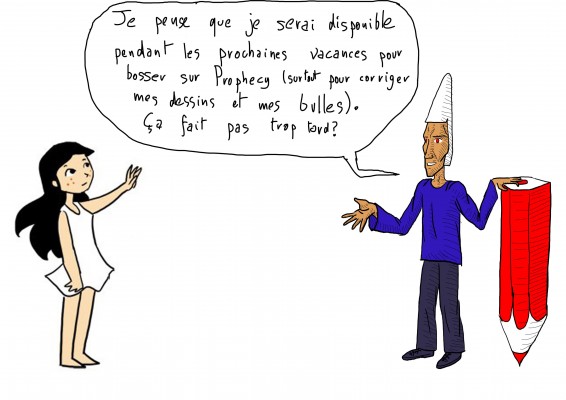 Je pense que je serai disponible
pendant les prochaines vacances pour
bosser sur Prophecy (surtout pour corriger
mes dessins et mes bulles).
Ça fait pas trop tard?